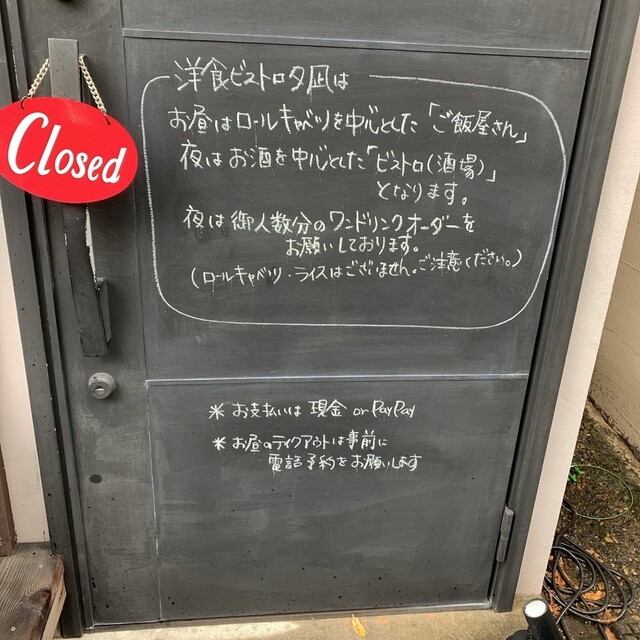 Closed
洋食ビストロ夕凪は
お昼はロールキャベツを中心とした「ご飯屋さん」
夜はお酒を中心とした「ビストロ(酒場)」
となります。
夜は御人数分のワンドリンクオーダーを
お願いしております。
(ロールキャベツ・ライスはございません。ご注意ください。)
* お支払いは 現金 or PayPay
* お昼のテイクアウトは事前に
電話予約をお願いします